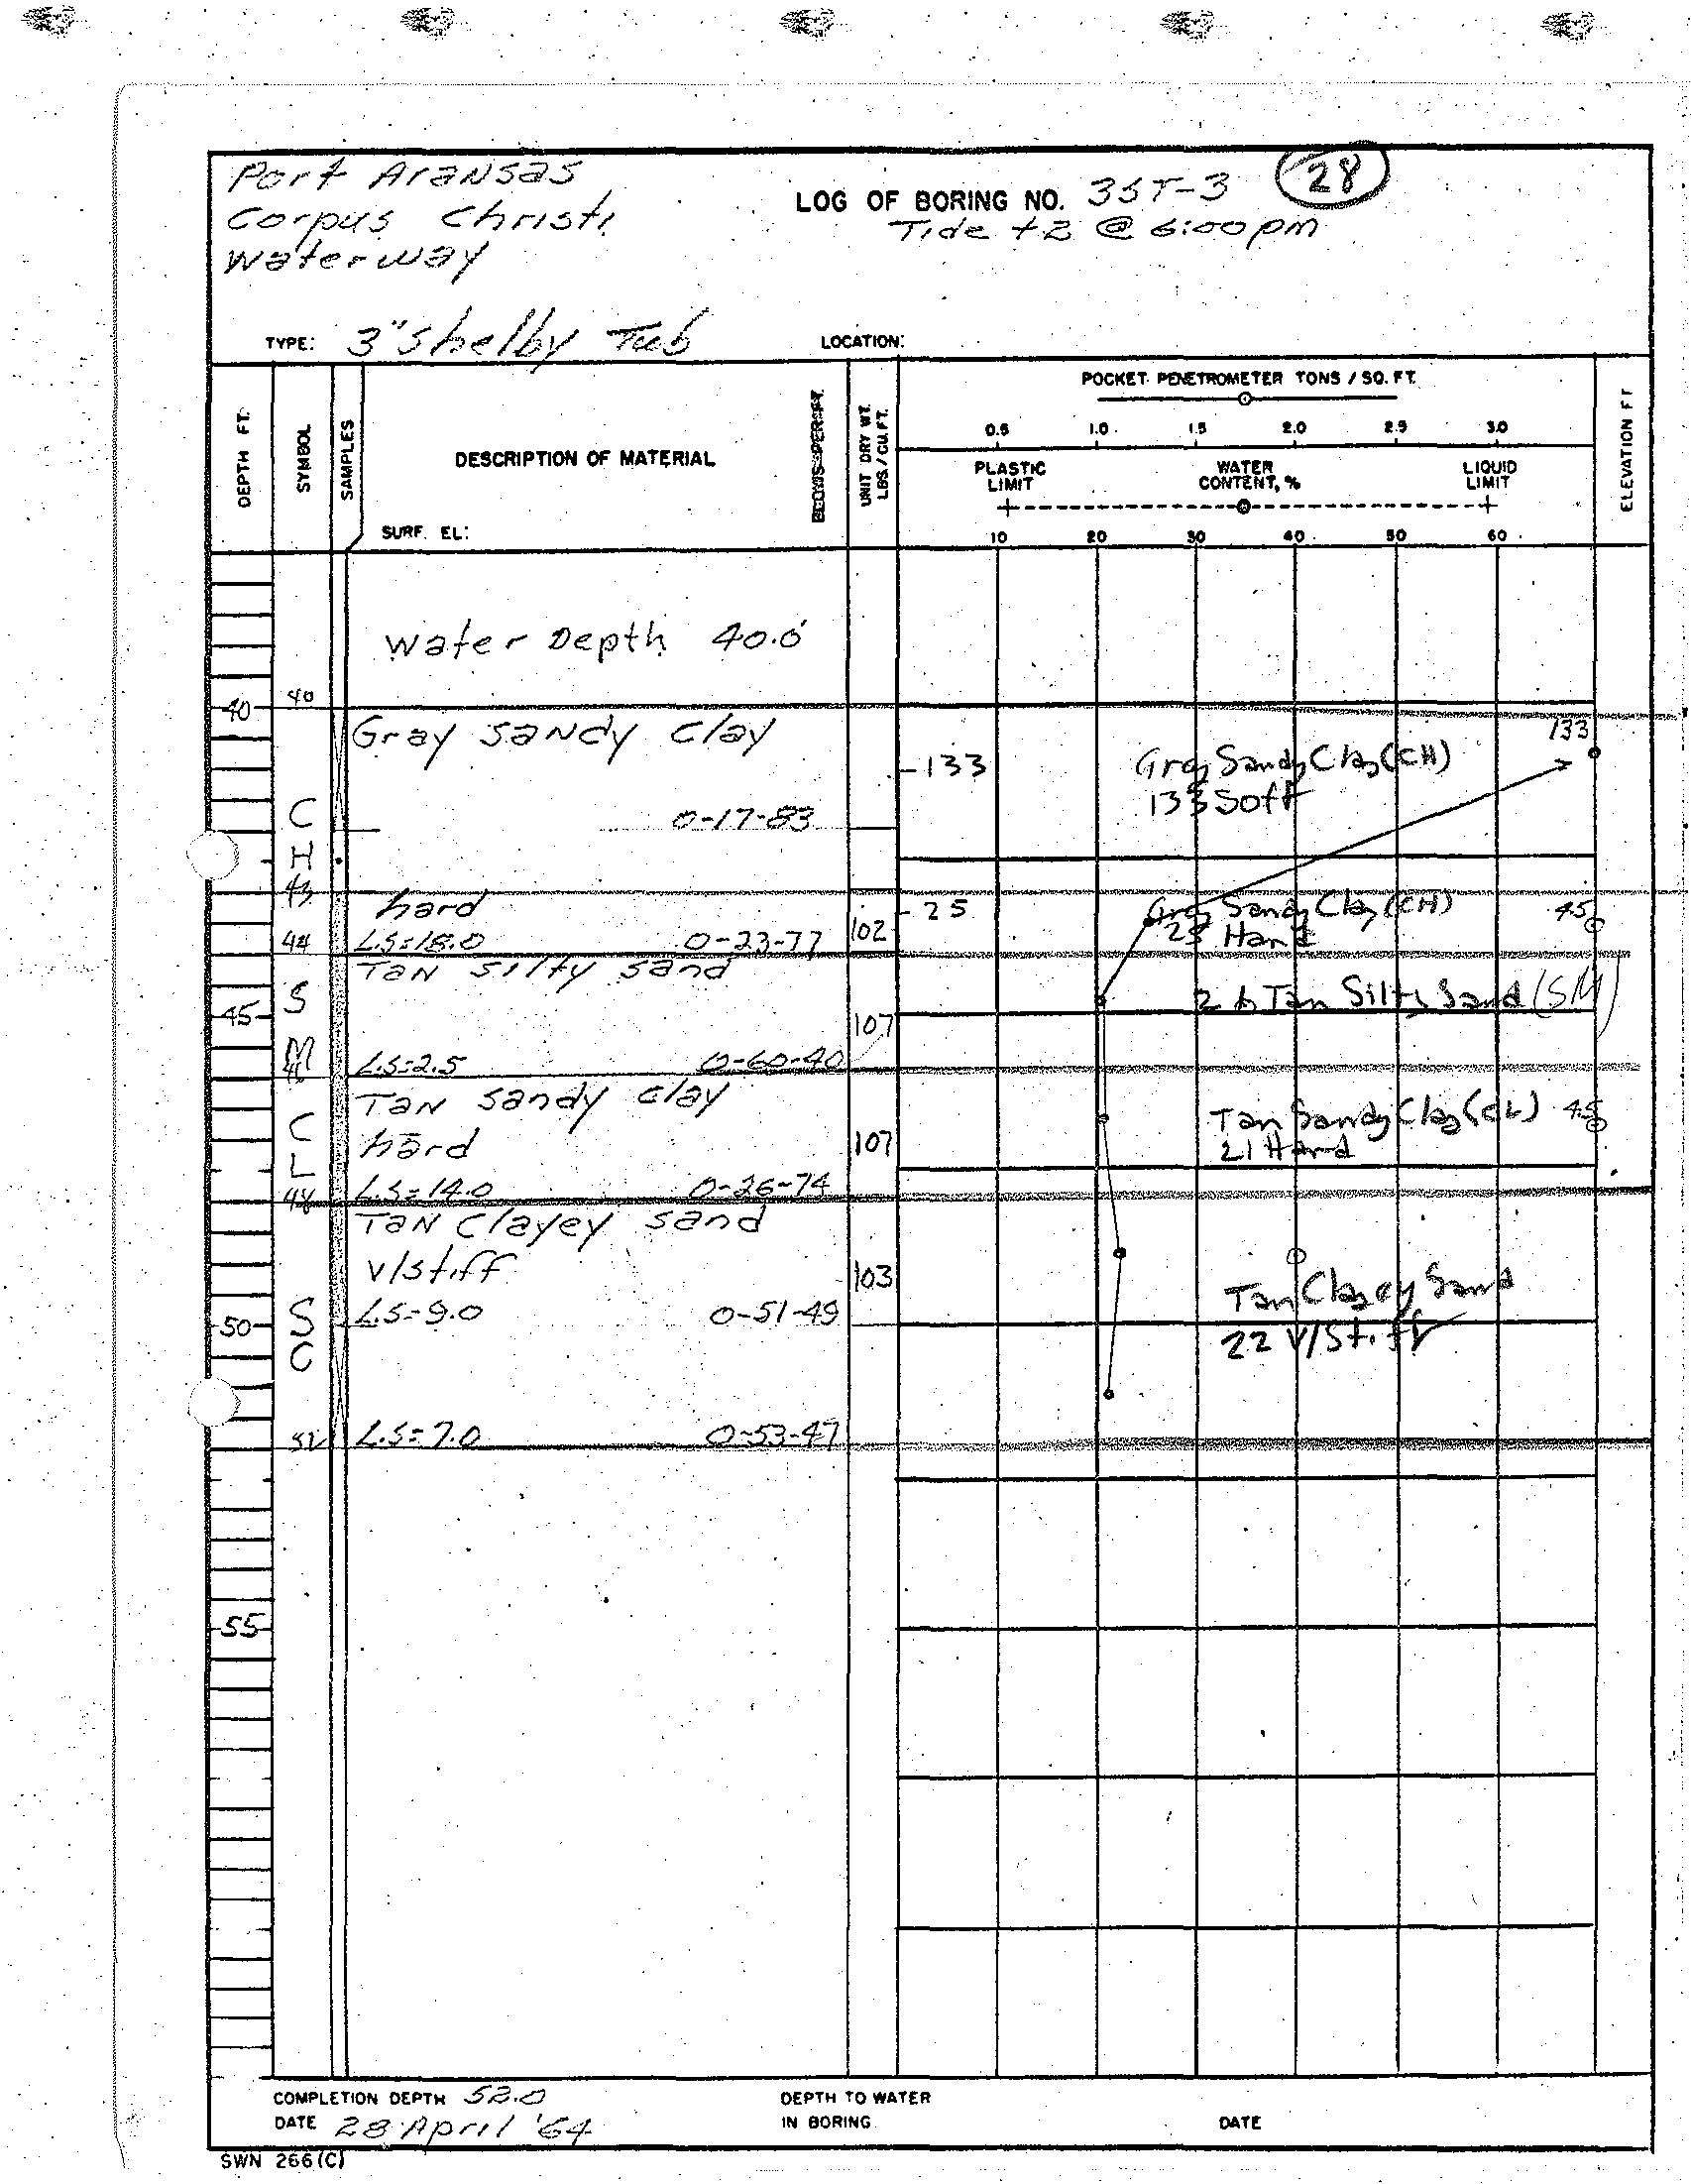 Port Aransas
Corpus Christi
Waterway
LOG OF BORING NO. 3ST-3 28
Tide +2 @ 6:00pm
TYPE: 3" Shelby Tub
LOCATION:
DEPTH FT.
SYMBOL
SAMPLES
DESCRIPTION OF MATERIAL
SURF. EL:
BLOWS PER FT.
UNIT DRY WT. LBS/CU.FT.
POCKET PENETROMETER TONS / SQ. FT.
0.5 1.0 1.5 2.0 2.5 3.0
PLASTIC LIMIT
WATER CONTENT, %
LIQUID LIMIT
10 20 30 40 50 60
ELEVATION FT
Water Depth 40.0'
40 40
Gray Sandy Clay
133
-133 Gray Sandy Clay (CH)
133 Soft
C
0-17-83
H
43
hard
25 Gray Sandy Clay (CH) 4.5
102 25 Hard
44 L.S=18.0 0-23-77
Tan silty sand
45 S
107 Tan Silty Sand (SM)
M
46 L.S=2.5 0-60-40
Tan sandy clay
C
hard 107 Tan Sandy Clay (CL) 4.5
21 Hard
L
48 L.S=14.0 0-26-74
Tan Clayey sand
v/stiff 103
Tan Clayey Sand
50 S L.S=9.0 0-51-49
22 V/Stiff
C
52 L.S=7.0 0-53-47
55
COMPLETION DEPTH 52.0
DATE 28 April '64
DEPTH TO WATER
IN BORING
DATE
SWN 266(C)